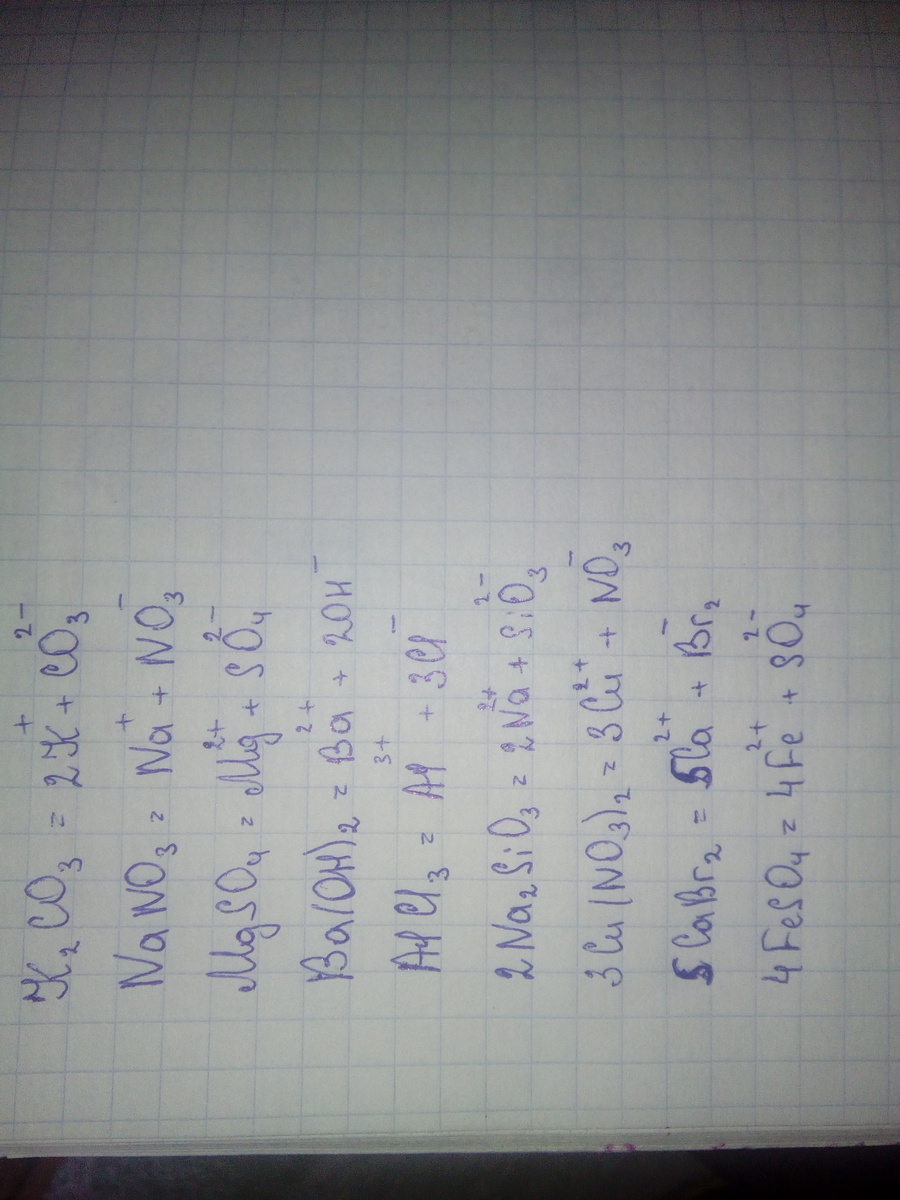 K₂CO₃ = 2K⁺ + CO₃²⁻
NaNO₃ = Na⁺ + NO₃⁻
MgSO₄ = Mg²⁺ + SO₄²⁻
Ba(OH)₂ = Ba²⁺ + 2OH⁻
AlCl₃ = Al³⁺ + 3Cl⁻
2Na₂SiO₃ = 2Na²⁺ + SiO₃²⁻
3Cu(NO₃)₂ = 3Cu²⁺ + NO₃⁻
5CaBr₂ = 5Ca²⁺ + Br₂⁻
4FeSO₄ = 4Fe²⁺ + SO₄²⁻